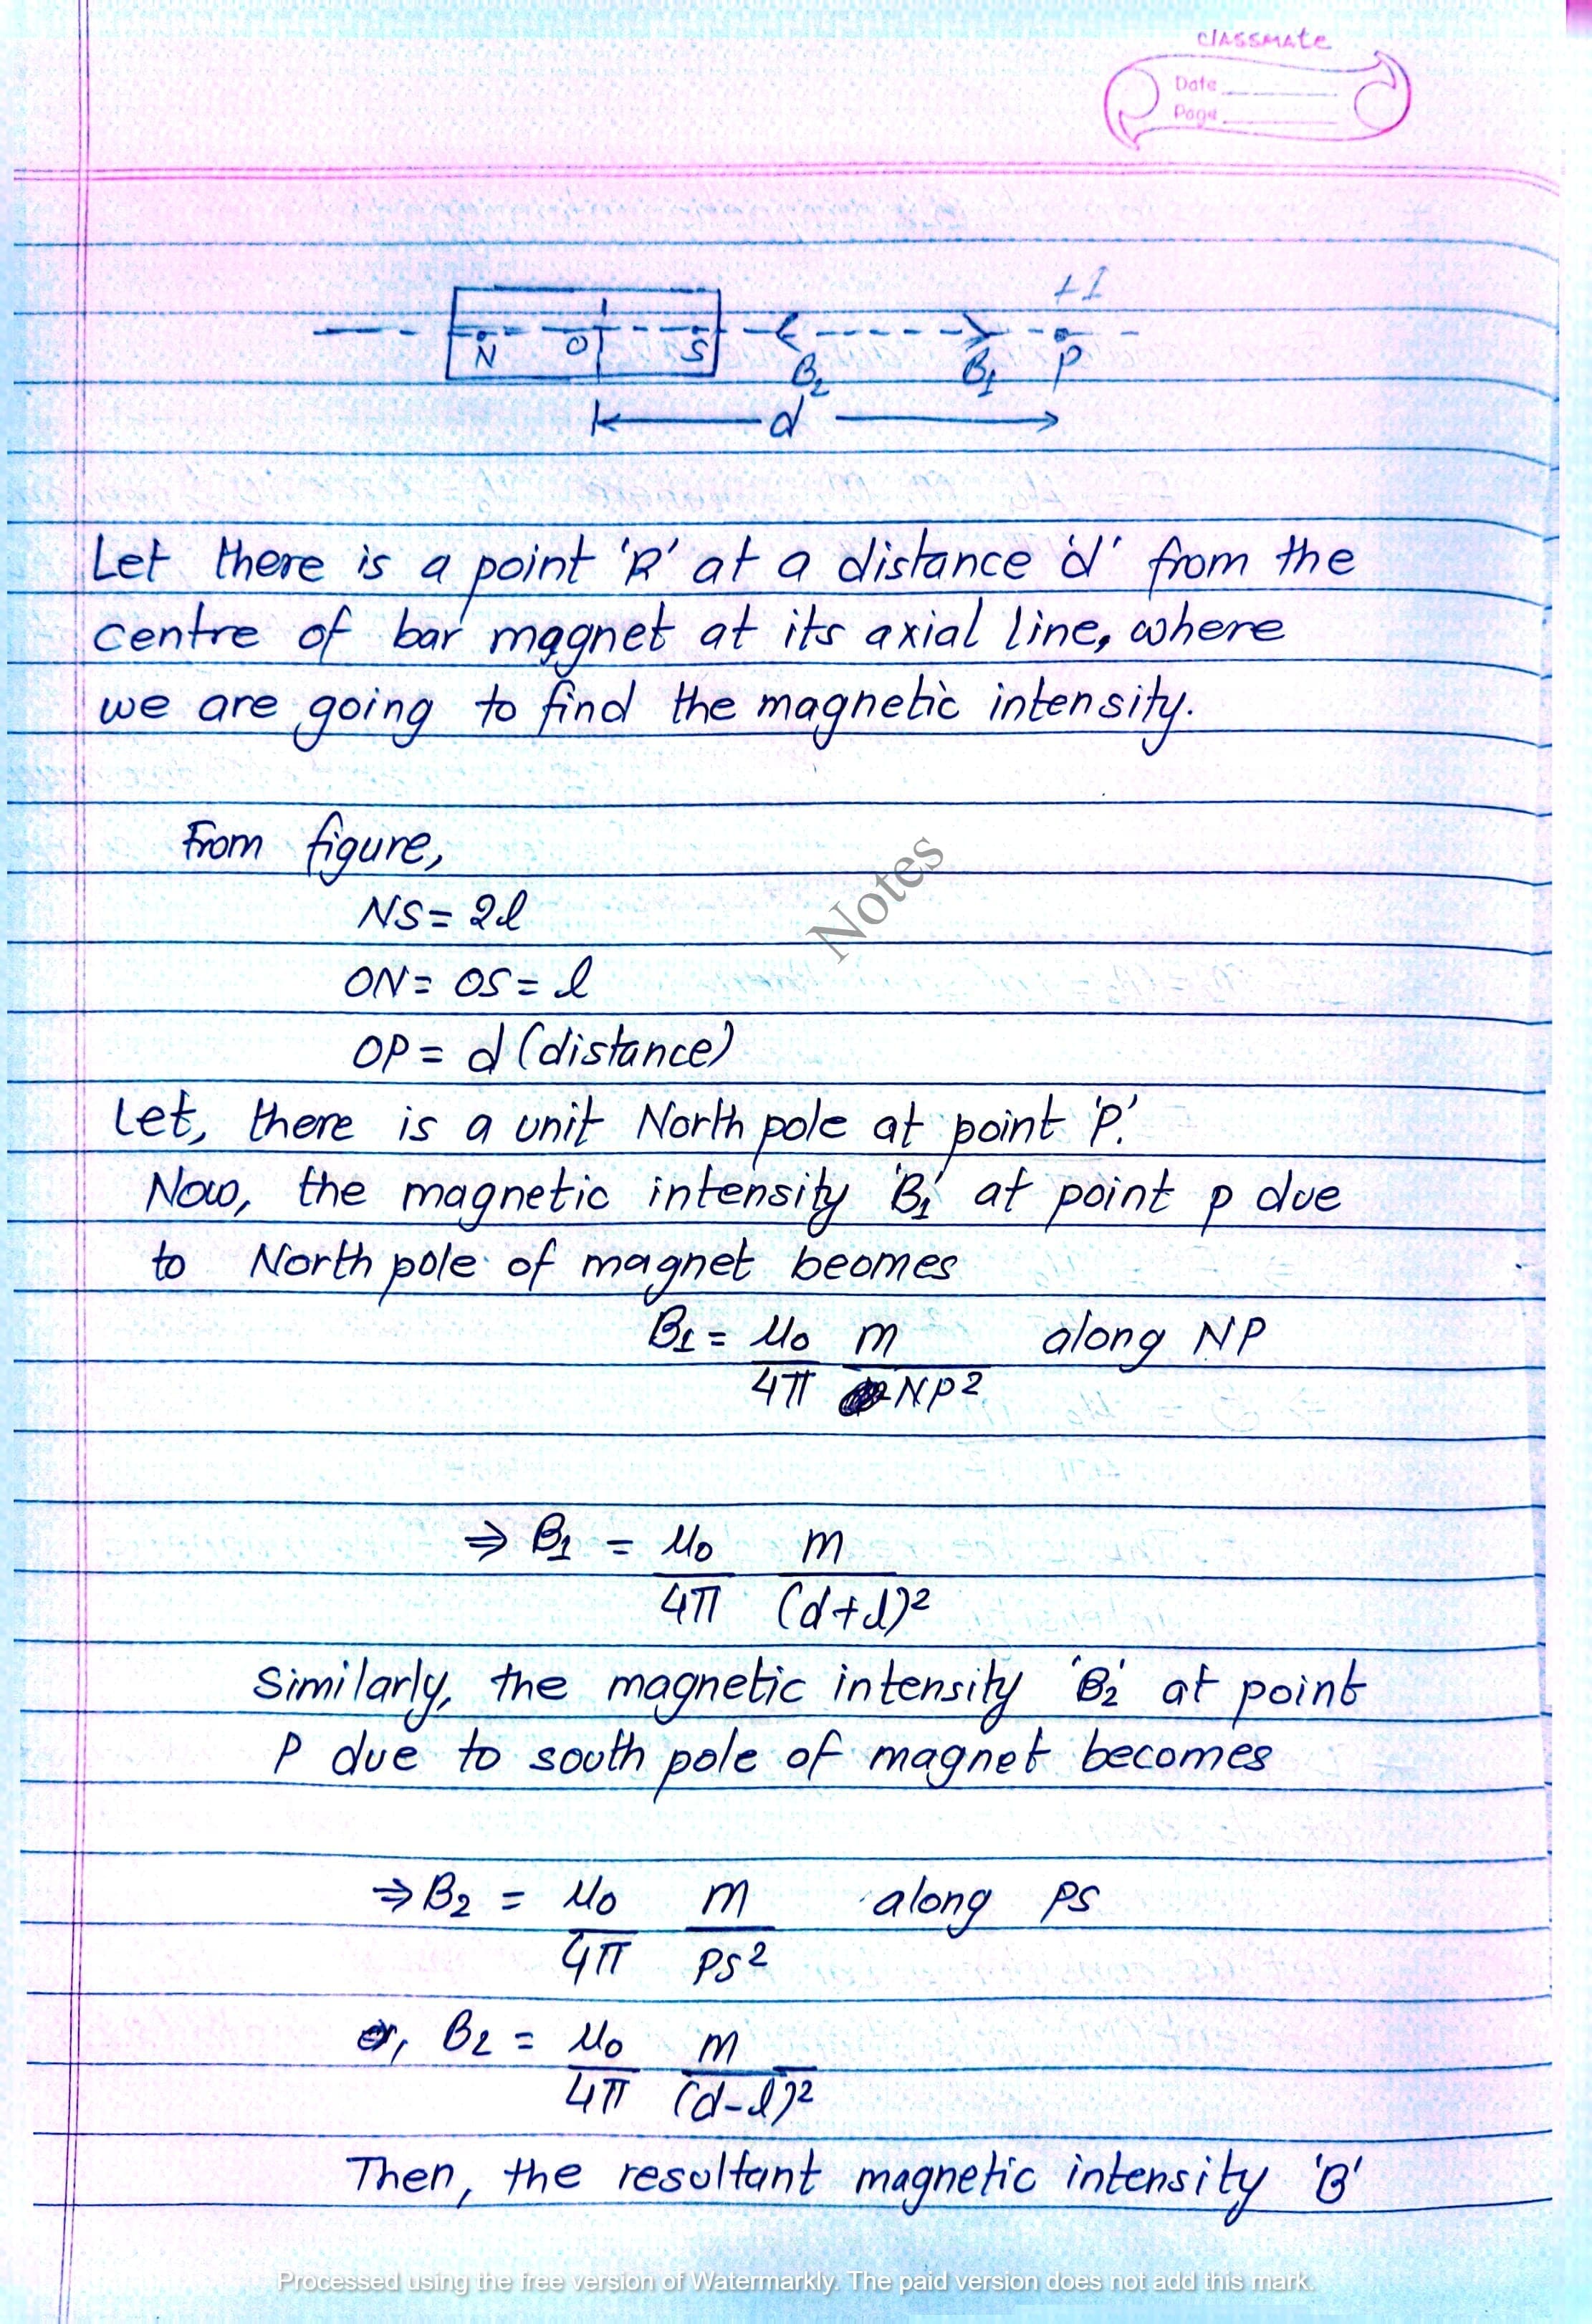 classmate
Date
Page
+1
N O S B₂ B₁ P
d
Let there is a point 'P' at a distance 'd' from the
centre of bar magnet at its axial line, where
we are going to find the magnetic intensity.
From figure,
NS = 2l
ON = OS = l
OP = d (distance)
Let, there is a unit North pole at point 'P'.
Now, the magnetic intensity 'B₁' at point p due
to North pole of magnet beomes
B₁ = μ₀/4π m/NP² along NP
⇒ B₁ = μ₀/4π m/(d+l)²
Similarly, the magnetic intensity 'B₂' at point
P due to south pole of magnet becomes
⇒ B₂ = μ₀/4π m/PS² along PS
or, B₂ = μ₀/4π m/(d-l)²
Then, the resultant magnetic intensity 'B'
Notes
Processed using the free version of Watermarkly. The paid version does not add this mark.